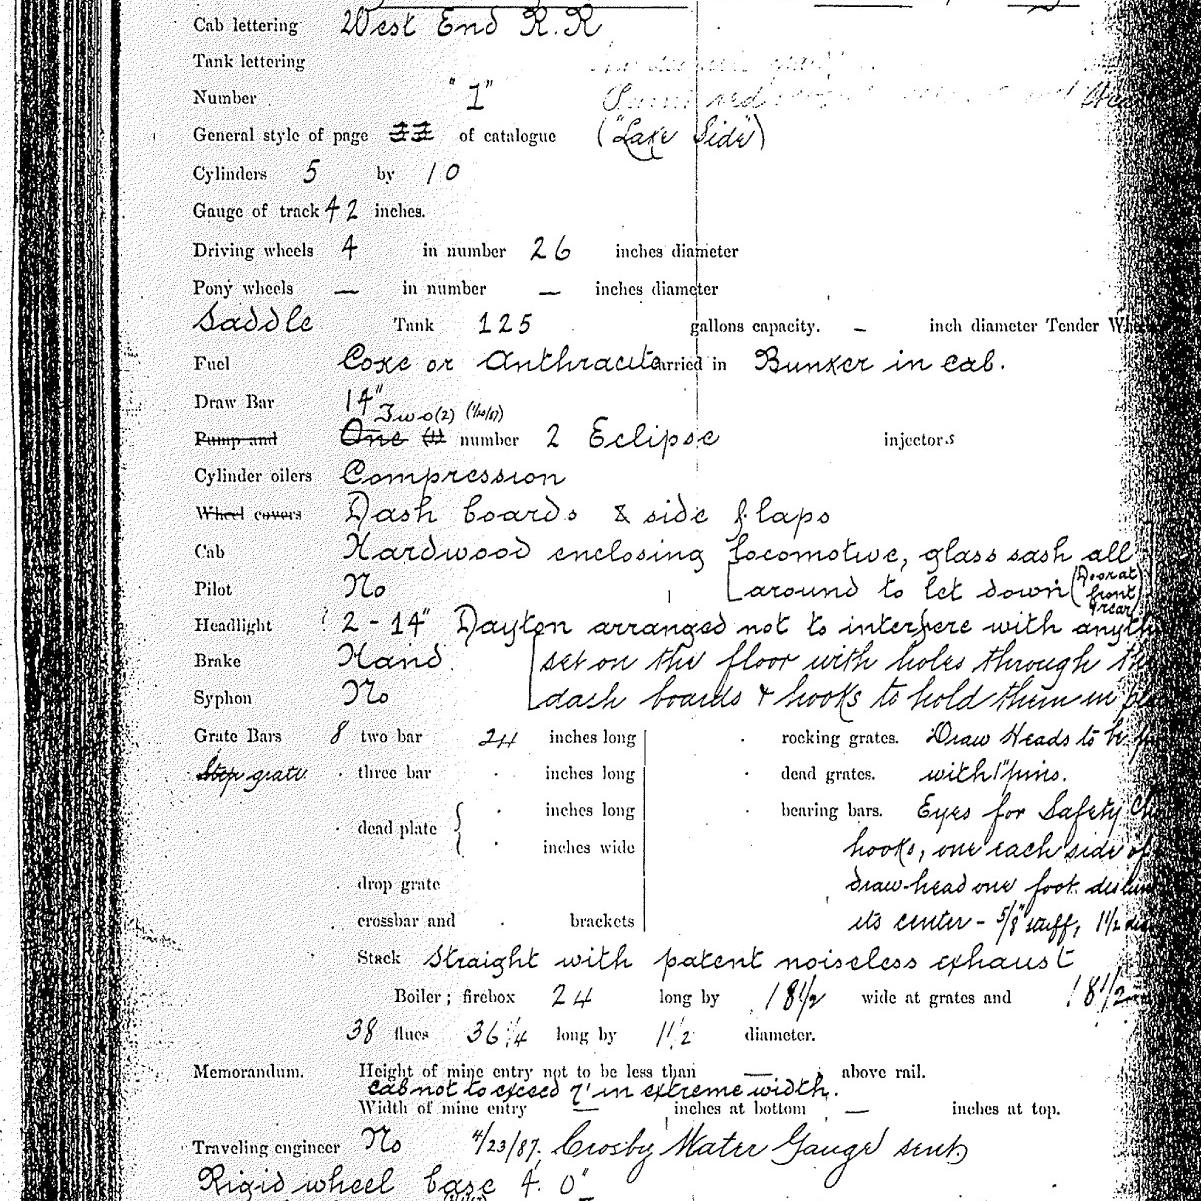 Cab lettering West End R.R
Tank lettering
Number "1"
General style of page 33 of catalogue ("Lake Side")
Cylinders 5 by 10
Gauge of track 42 inches.
Driving wheels 4 in number 26 inches diameter
Pony wheels — in number — inches diameter
Saddle Tank 125 gallons capacity. – inch diameter Tender
Fuel Coke or Anthracite carried in Bunker in cab.
Draw Bar 14"
Two (2)
Pump and One (1) number 2 Eclipse injectors
Cylinder oilers Compression
Wheel covers Dash boards & side flaps
Cab Hardwood enclosing locomotive, glass sash all
Pilot No around to let down (Door at front & rear)
Headlight 2 - 14" Dayton arranged not to interfere with
Brake Hand set on the floor with holes through
Syphon No dash boards & hooks to hold them in
Grate Bars 8 two bar 24 inches long rocking grates. Draw Heads to
Step grate three bar inches long dead grates. with 1" pins.
inches long bearing bars. Eyes for Safety
dead plate { inches wide hooks, one each side of
drop grate draw-head one foot
crossbar and brackets its center - 5/8" stuff, 1 1/2
Stack Straight with patent noiseless exhaust
Boiler; firebox 24 long by 18 1/2 wide at grates and 18 1/2
38 flues 36 1/4 long by 1 1/2 diameter.
Memorandum. Height of mine entry not to be less than — above rail.
Cab not to exceed 7' in extreme width.
Width of mine entry — inches at bottom — inches at top.
Traveling engineer No 4/23/87. Crosby Water Gauge sent
Rigid wheel base 4' 0"